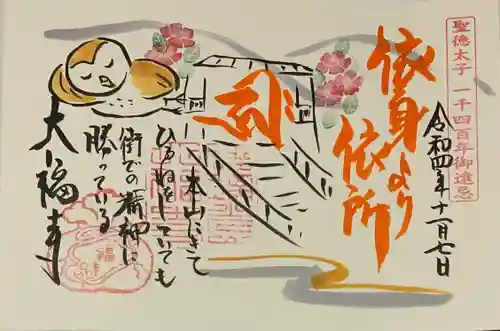 聖徳太子 一千四百年御遠忌
令和四年十一月七日
依身より
依所
本山にきて
ひるねをしていても
街での精神に
勝っている
大福寺